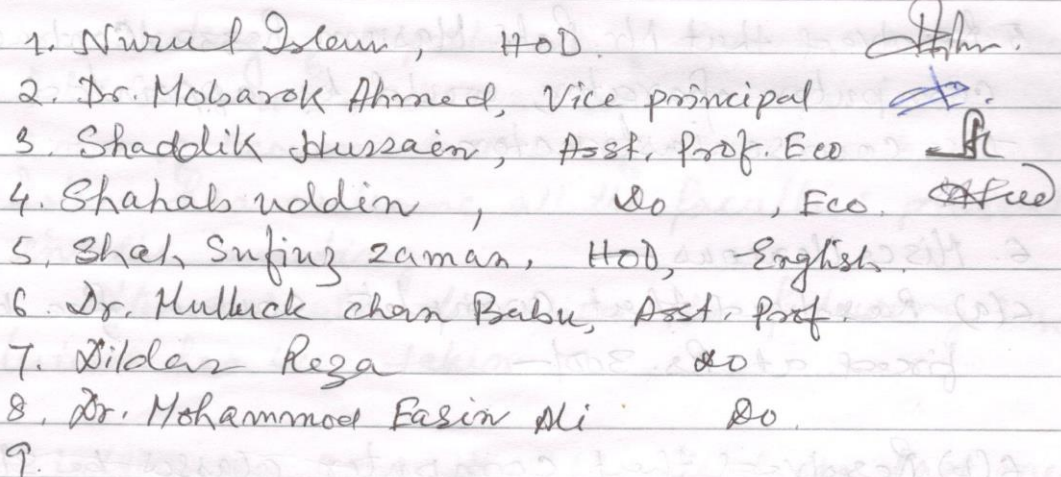 1. Nurul Islam, HOD.
2. Dr. Mobarok Ahmed, Vice principal
3. Shaddik Hussain, Asst. Prof. Eco
4. Shahabuddin, Do, Eco.
5. Shah Sufiuz zaman, HOD, English.
6. Dr. Mulluck chan Babu, Asst. Prof.
7. Dildar Reza Do
8. Dr. Mohammod Easin Ali Do.
9.